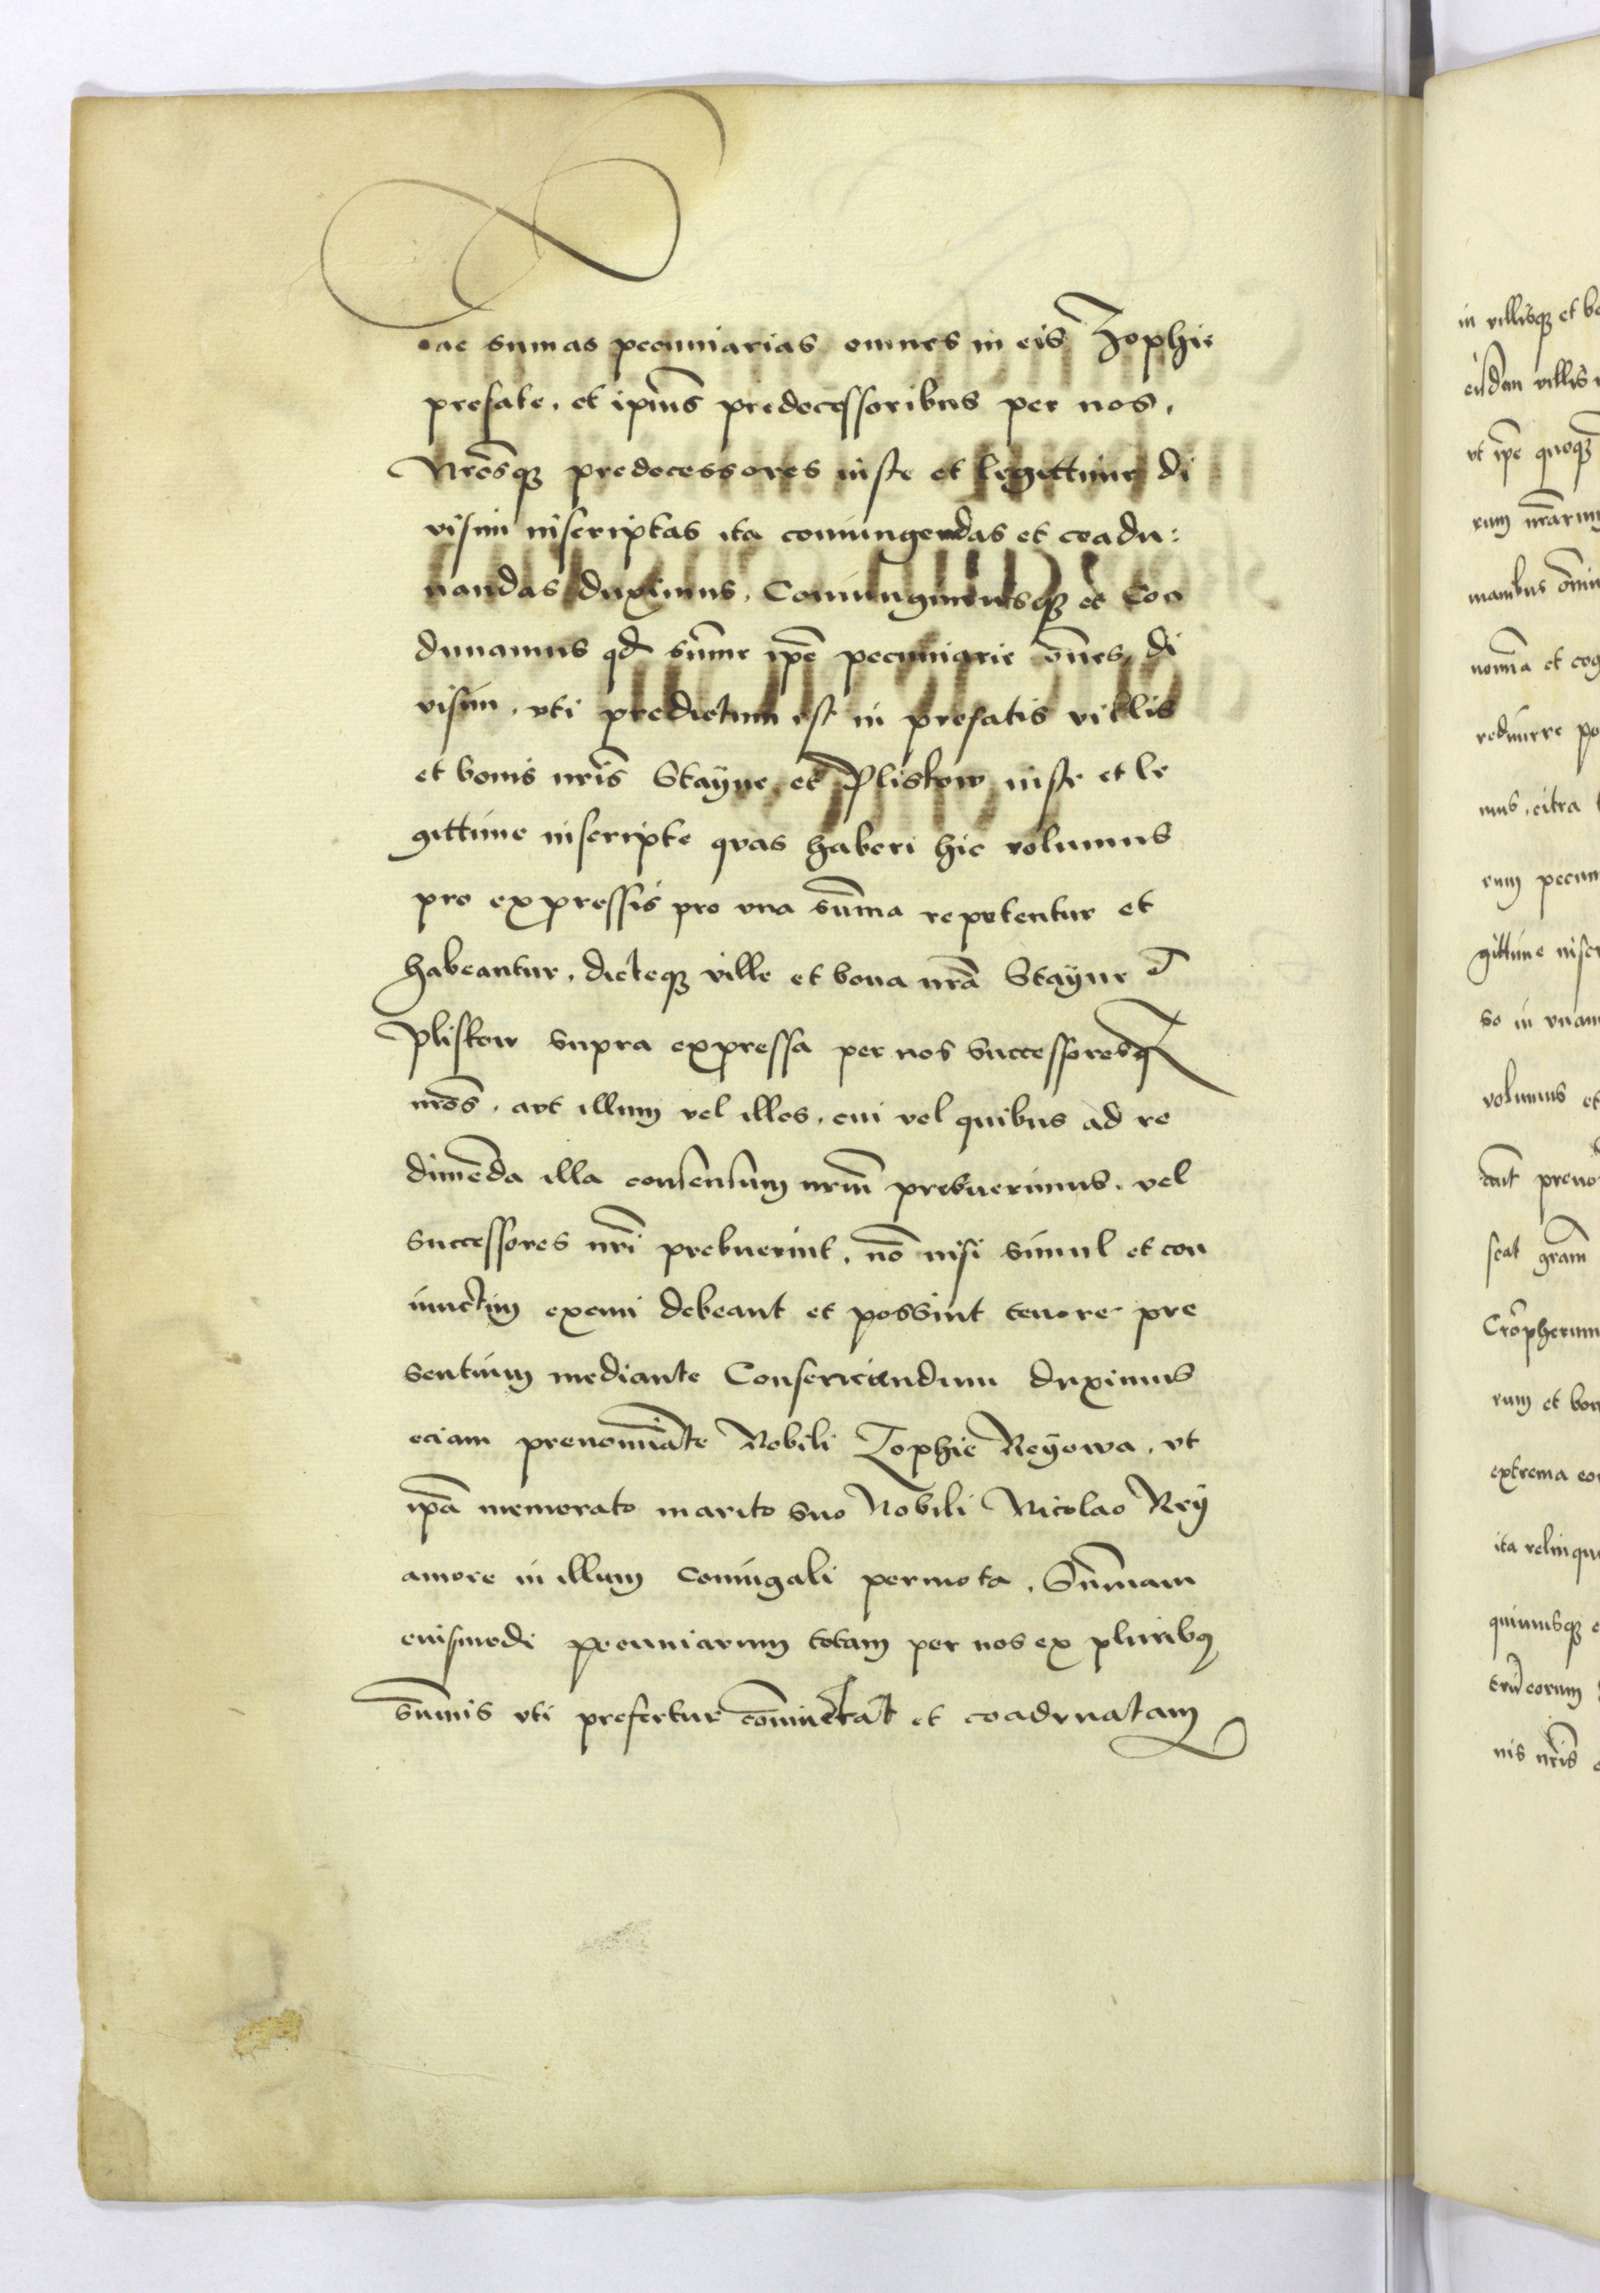 ac sumas pecuniarias omnes in eis Zophie
prefate, et ipiūs predecessoribus per nos,
Nrōsqꝫ predecessores iuste et legittime di
visim inscriptas ita coniungendas et coadu:
nandas duximus, Coniungimusqꝫ et Coa
dunamus qd sūme ipē pecuniarie oms di
visim, vti predictum est in prefatis villis
et bonis nrīs Stayne et Pliskow iuste et le
gittime inscripte qvas haberi hic volumus
pro expressis pro vna sūma reputentur et
habeantur, dicteqꝫ ville et bona nrā Stayne et
Pliskow supra expressa per nos successoresqꝫ
nrōs, avt illum vel illos, cui vel quibus ad re
dimēda illa consensum nrūm prebuerimus, vel
successores nrī prebuerint, nō nisi simul et con
iunctim eximi debeant et possint tenore pre
sentium mediante Consentiendum duximus
eciam prenomiāte Nobili Zophie Reyowa, vt
ipā memorato marito suo Nobili Nicolao Rey
amore in illum coniugali permota, Sūmam
euismodi pecuniarum totam per nos ex pluribꝰ
sūmis vti prefertur cōniūctāt et coadvnatam
in villisqꝫ et bo
eisdem villis
vt ipē quoqꝫ
rum nrārum
manibus omn
nomīa et cog
redimere po
mus, citra
rum pecun
gittime inscr
so in vnam
volumus et
cant preno
scat grām
Crōpherum
rum et bon
extrema
ita relinqu
quimusqꝫ
eorum
nis nrīs